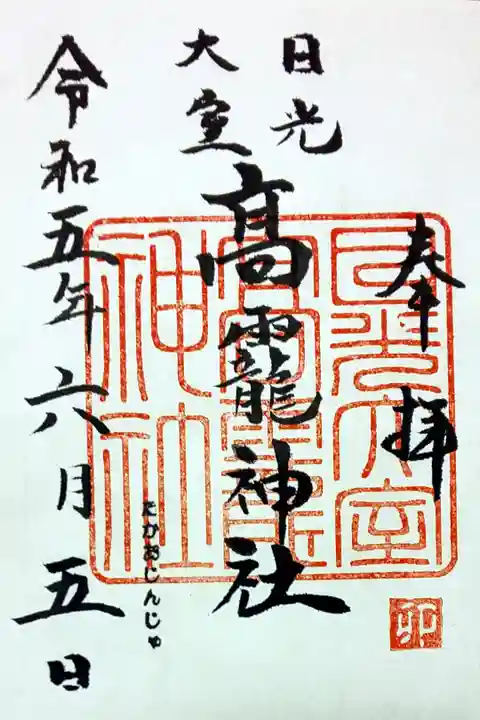 奉拝
日光
大室
高龗神社
たかおじんじゃ
令和五年六月五日
日光大室
高龗
神社
卯